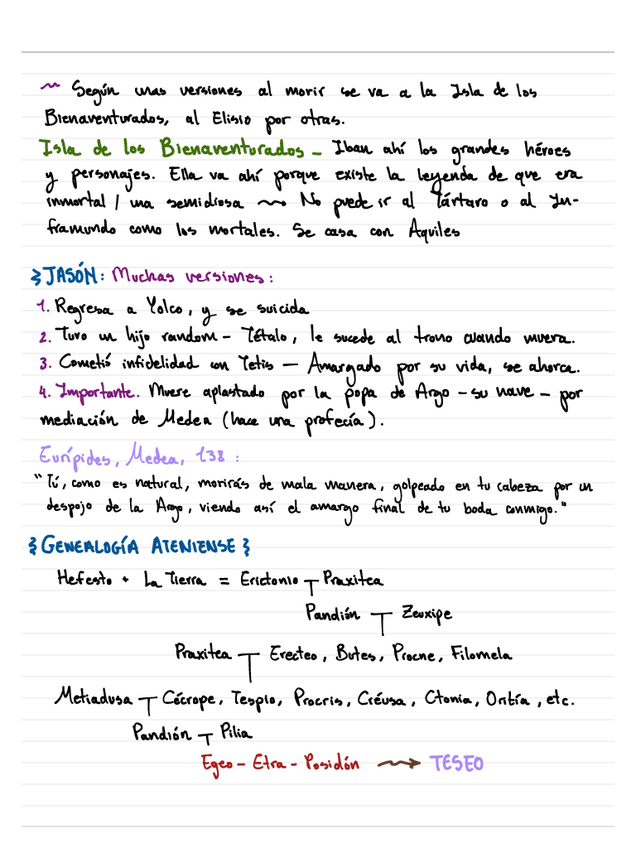 ~ Según unas versiones al morir se va a la Isla de los
Bienaventurados, al Elisio por otras.
Isla de los Bienaventurados - Iban ahí los grandes héroes
y personajes. Ella va ahí porque existe la leyenda de que era
inmortal / una semidiosa ~> No puede ir al Tártaro o al In-
framundo como los mortales. Se casa con Aquiles
JASÓN: Muchas versiones:
1. Regresa a Yolco, y se suicida
2. Tuvo un hijo random - Tétalo, le sucede al trono cuando muera.
3. Cometió infidelidad con Tetis - Amargado por su vida, se ahorca.
4. Importante. Muere aplastado por la popa de Argo - su nave - por
mediación de Medea (hace una profecía).
Eurípides, Medea, 138:
"Tú, como es natural, morirás de mala manera, golpeado en tu cabeza por un
despojo de la Argo, viendo así el amargo final de tu boda conmigo."
{ GENEALOGÍA ATENIENSE }
Hefesto + La Tierra = Erictonio Praxitea
Pandión Zeuxipe
Praxitea Erecteo, Butes, Procne, Filomela
Metiadusa Cécrope, Tespio, Procris, Créusa, Ctonia, Oritía, etc.
Pandión Pilia
Egeo - Etra - Posidón ~> TESEO